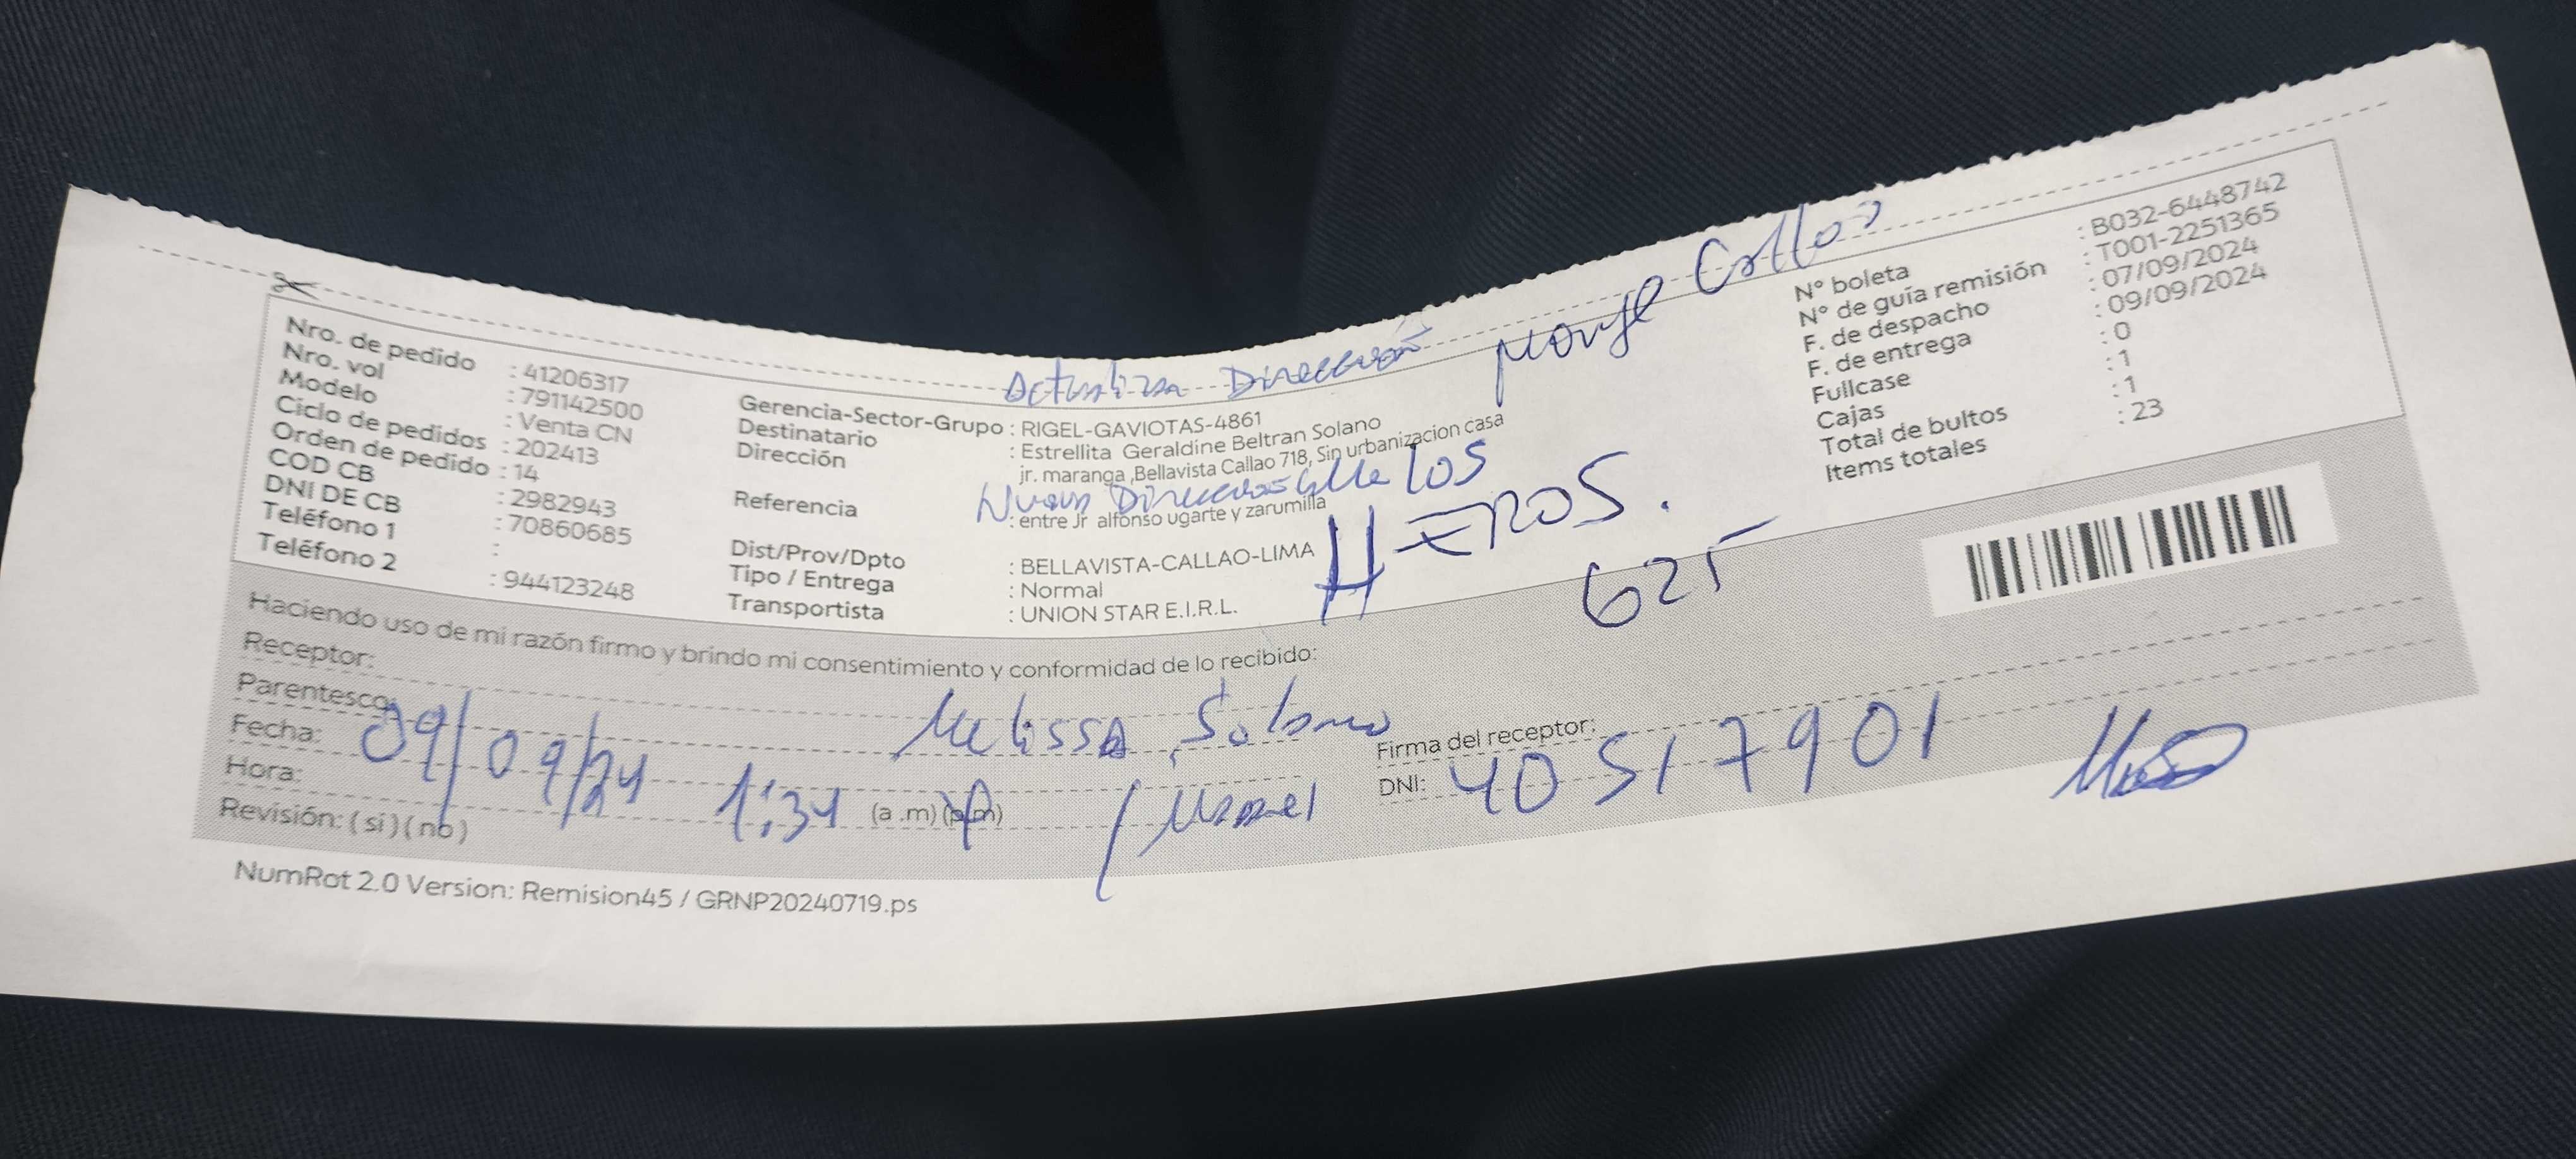 Actualizar Dirección
Nro. de pedido : 41206317
Nro. vol : 791142500
Modelo : Venta CN
Ciclo de pedidos : 202413
Orden de pedido : 14
COD CB : 2982943
DNI DE CB : 70860685
Teléfono 1 :
Teléfono 2 : 944123248
Gerencia-Sector-Grupo : RIGEL-GAVIOTAS-4861
Destinatario : Estrellita Geraldine Beltran Solano
Dirección : jr. maranga ,Bellavista Callao 718, Sin urbanizacion casa
Nueva Dirección Calle Los
HEROS.
625
Referencia : entre Jr alfonso ugarte y zarumilla
Dist/Prov/Dpto : BELLAVISTA-CALLAO-LIMA
Tipo / Entrega : Normal
Transportista : UNION STAR E.I.R.L.
N° boleta : B032-6448742
N° de guía remisión : T001-2251365
F. de despacho : 07/09/2024
F. de entrega : 09/09/2024
Fullcase : 0
Cajas : 1
Total de bultos : 1
Items totales : 23
Haciendo uso de mi razón firmo y brindo mi consentimiento y conformidad de lo recibido:
Receptor:
Melissa Solano
Parentesco:
Fecha: 09/09/24
Hora: 1:34 (a .m) (p.m)
Revisión: ( sí ) ( no )
Firma del receptor:
DNI: 40517901
NumRot 2.0 Version: Remision45 / GRNP20240719.ps